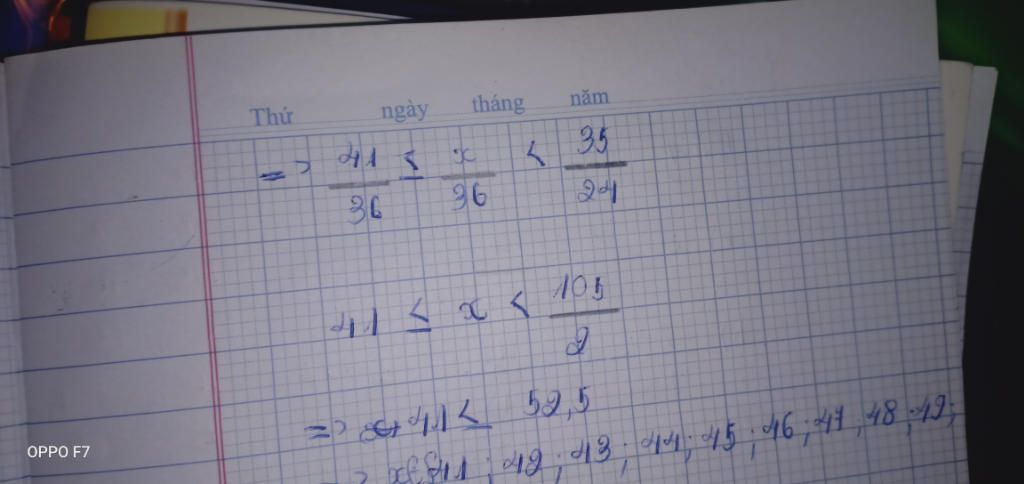 Thứ ngày tháng năm
=> 41/36 ≤ x/36 < 35/24
41 ≤ x < 105/2
=> 41 ≤ 52,5
41 ; 42 ; 43 ; 44 ; 45 ; 46 ; 47 ; 48 ; 49 ;
OPPO F7